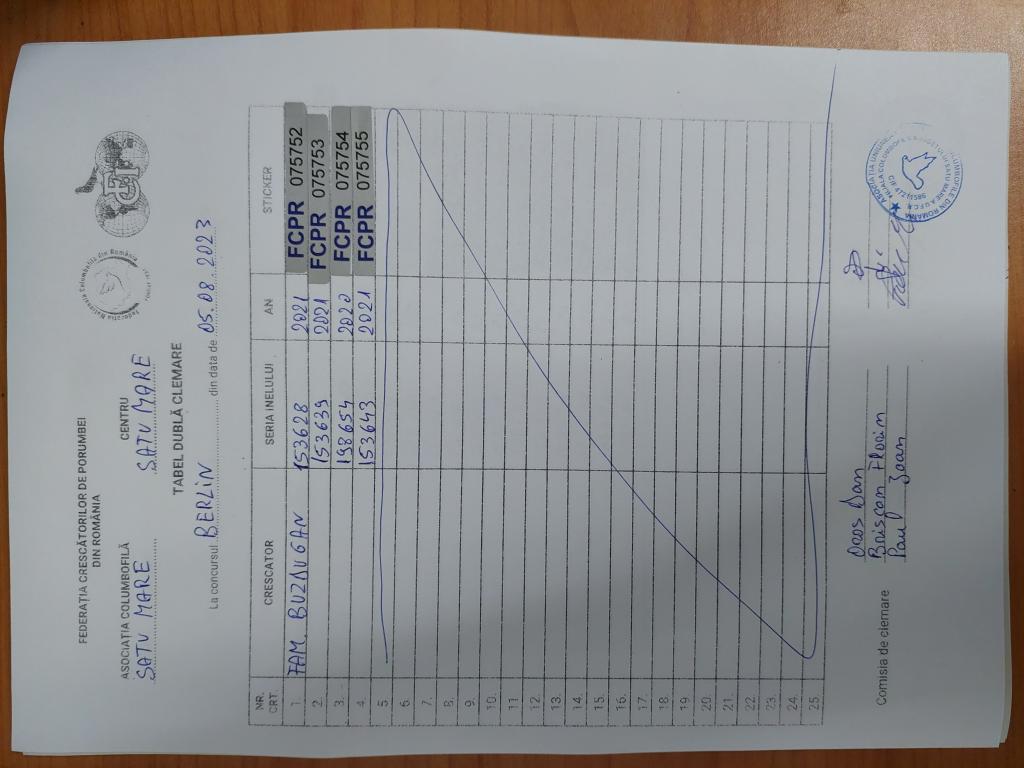 FEDERAȚIA CRESCĂTORILOR DE PORUMBEI
DIN ROMÂNIA
ASOCIAȚIA COLUMBOFILĂ CENTRU
SATU MARE SATU MARE
TABEL DUBLĂ CLEMARE
La concursul BERLIN din data de 05.08.2023
NR. CRT. CRESCATOR SERIA INELULUI AN STICKER
1. FAM. BUZDUGAN 153628 2021 FCPR 075752
2. 153639 2021 FCPR 075753
3. 198654 2020 FCPR 075754
4. 153643 2021 FCPR 075755
5.
6.
7.
8.
9.
10.
11.
12.
13.
14.
15.
16.
17.
18.
19.
20.
21.
22.
23.
24.
25.
Comisia de clemare
Dan
Florin
Paul Ioan